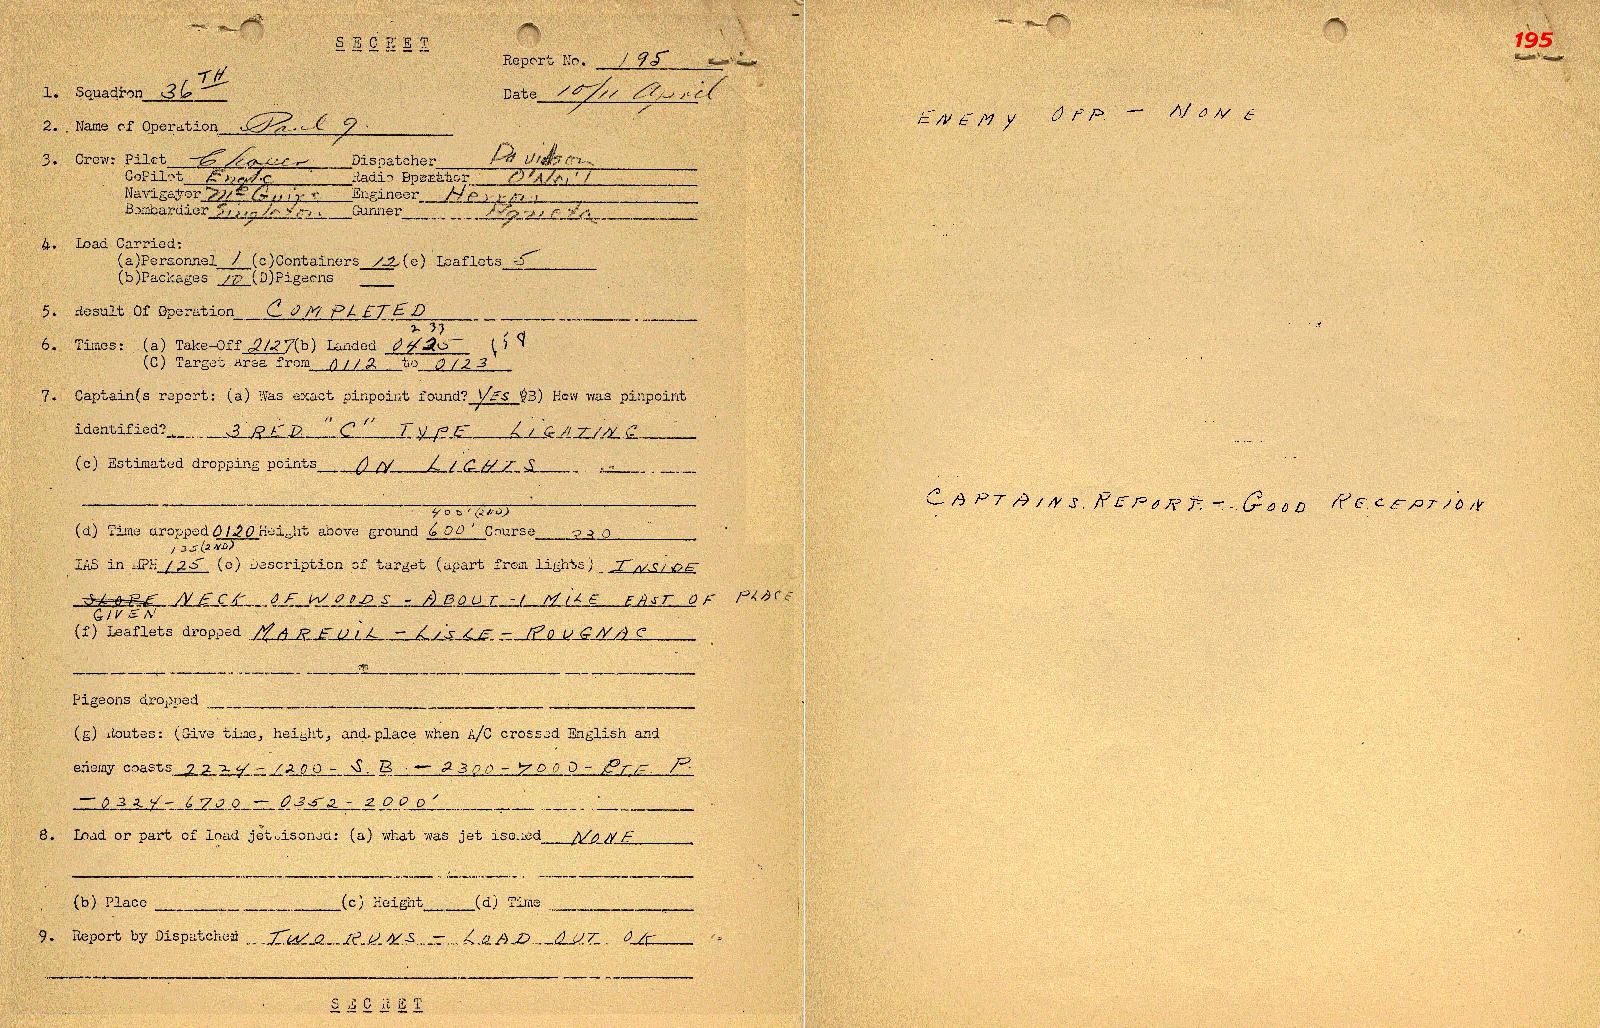 SECRET
Report No. 195
1. Squadron 36TH
Date 10/11 April
2. Name of Operation Paul 9.
3. Crew: Pilot Dispatcher Davidson
CoPilot Radio Operator O'Neill
Navigator McGuire Engineer
Bombardier Singleton Gunner
4. Load Carried:
(a)Personnel 1 (c)Containers 12 (e) Leaflets 5
(b)Packages 10 (D)Pigeons
5. Result Of Operation COMPLETED
2 33
6. Times: (a) Take-Off 2127 (b) Landed 0425
(C) Target Area from 0112 to 0123
7. Captain(s report: (a) Was exact pinpoint found? YES (B) How was pinpoint
identified? 3 RED "C" TYPE LIGHTING
(c) Estimated dropping points ON LIGHTS
400' (2ND)
(d) Time dropped 0120 Height above ground 600' Course
135 (2ND)
IAS in MPH 125 (e) Description of target (apart from lights) INSIDE
SLOPE NECK OF WOODS - ABOUT -1 MILE EAST OF PLACE
GIVEN
(f) Leaflets dropped MAREUIL - LISLE - ROUGNAC
Pigeons dropped
(g) Routes: (Give time, height, and place when A/C crossed English and
enemy coasts 2224-1200- S.B. - 2300-7000- PTE. P.
- 0324- 6700 - 0352 - 2000'
8. Load or part of load jettisoned: (a) what was jet isoned NONE
(b) Place (c) Height (d) Time
9. Report by Dispatcher TWO RUNS - LOAD OUT OK
SECRET
195
ENEMY OPP. - NONE
CAPTAINS REPORT - GOOD RECEPTION